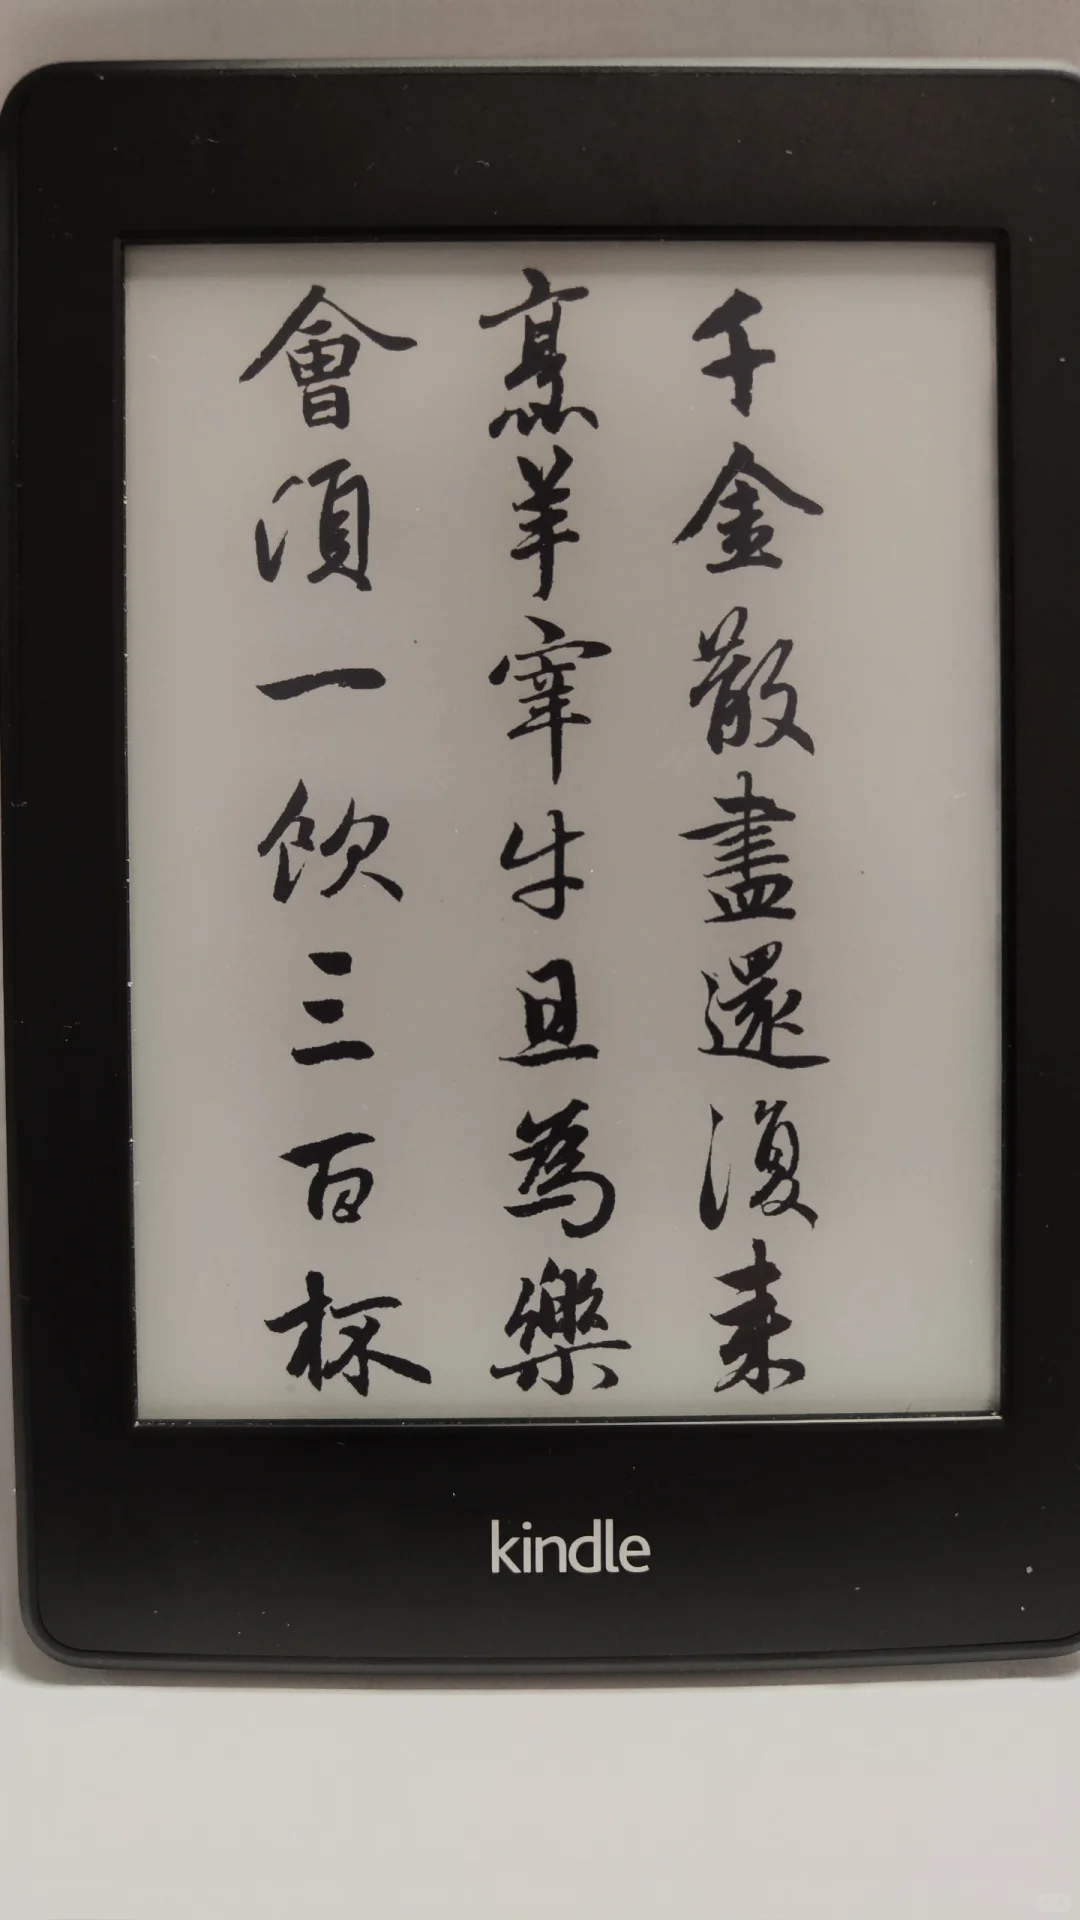 千金散盡還復來
烹羊宰牛且為樂
會須一飲三百杯
kindle